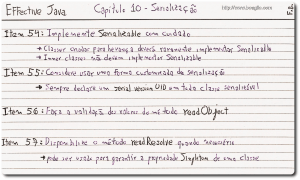 Effective Java
Capítulo 10 - Serialização
Item 54: Implemente Serializable com cuidado
→ Classes criadas para herança devem raramente implementar Serializable
→ Inner classes não devem implementar Serializable
Item 55: Considere usar uma forma customizada de serialização
→ Sempre declare um serial version UID em toda classe serializável
Item 56: Faça a validação dos valores no método readObject
Item 57: Disponibilize o método readResolve quando necessário
→ pode ser usado para garantir a propriedade Singleton de uma classe